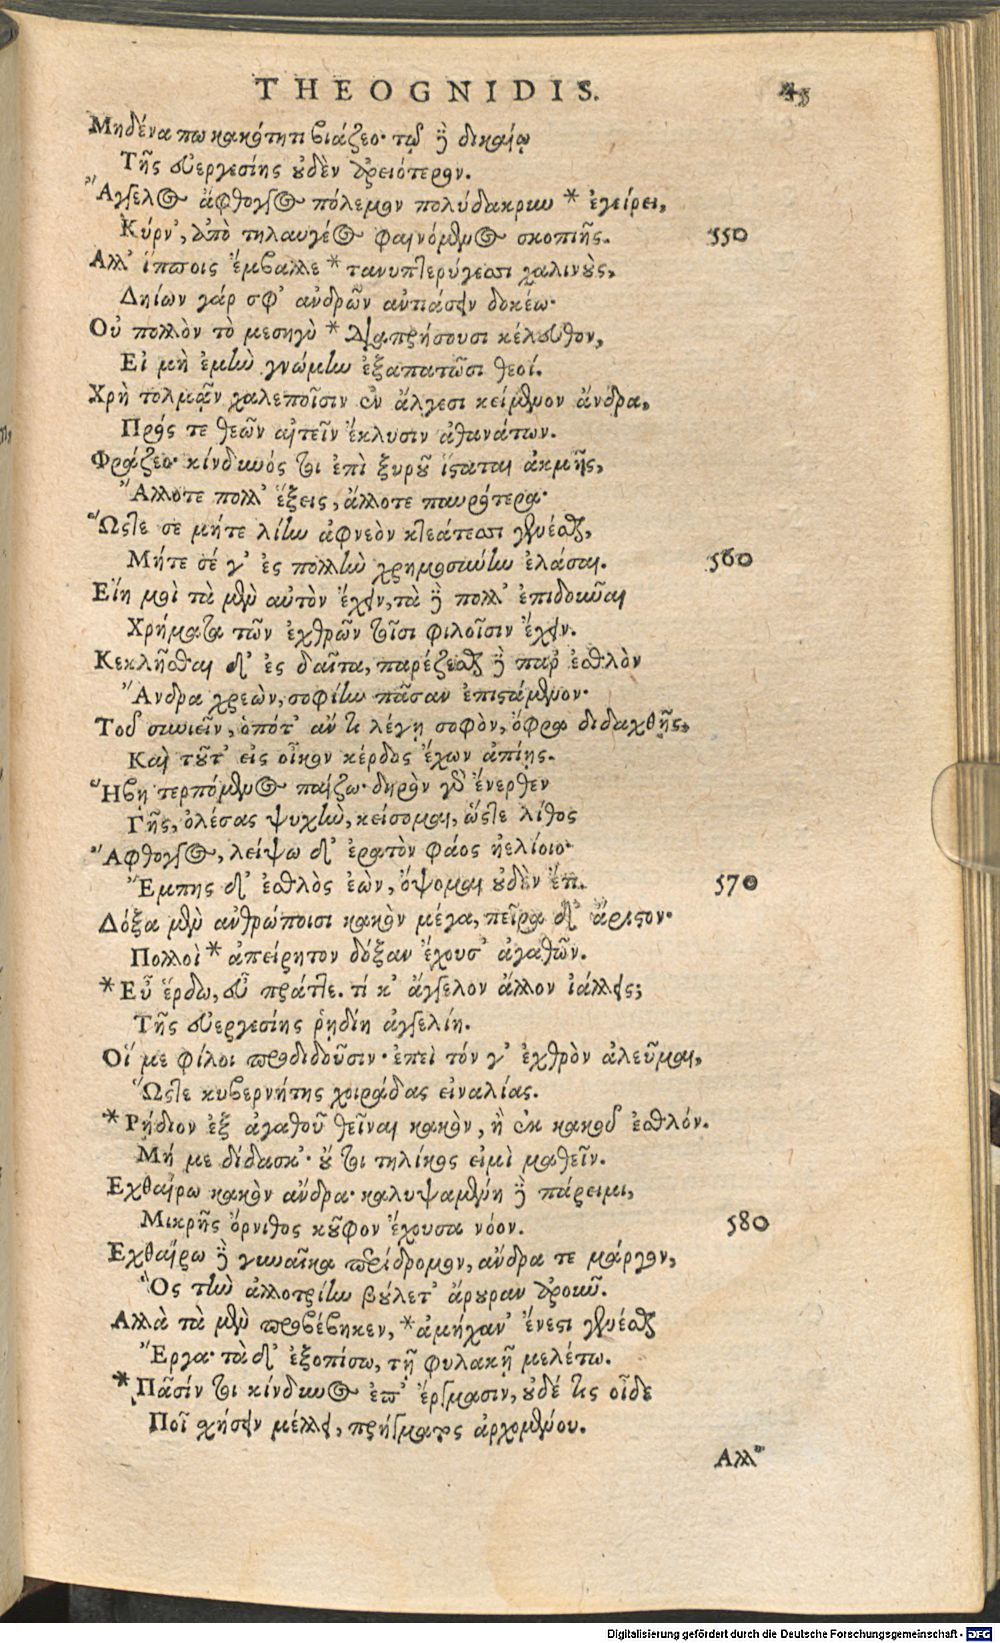 THEOGNIDIS. 45
Μηδένα πω κακότητι βιάζεο· τῷ δὲ δικαίῳ
Τῆς εὐεργεσίης οὐδὲν ἀρειότερον.
Ἄγγελος ἄφθογγος πόλεμον πολύδακρυν * ἐγείρει,
Κύρν', ἀπὸ τηλαυγέος φαινόμενος σκοπιῆς. 550
Ἀλλ' ἵπποις ἔμβαλλε * τανυπτερύγεσσι χαλινοὺς,
Δηίων γάρ σφ' ἀνδρῶν ἀντιάσειν δοκέω·
Οὐ πολλὸν τὸ μεσηγὺ * διαπρήσουσι κέλευθον,
Εἰ μὴ ἐμὴν γνώμην ἐξαπατῶσι θεοί.
Χρὴ τολμᾷν χαλεποῖσιν ἐν ἄλγεσι κείμενον ἄνδρα,
Πρός τε θεῶν αἰτεῖν ἔκλυσιν ἀθανάτων.
Φράζεο· κίνδυνός τοι ἐπὶ ξυροῦ ἵσταται ἀκμῆς,
Ἄλλοτε πολλ' ἕξεις, ἄλλοτε παυρότερα·
Ὥστε σε μήτε λίην ἀφνεὸν κτεάτεσσι γενέσθαι,
Μήτε σέ γ' ἐς πολλὴν χρημοσύνην ἐλάσαι. 560
Εἴη μοὶ τὰ μὲν αὐτὸν ἔχειν, τὰ δὲ πολλ' ἐπιδοῦναι
Χρήματα τῶν ἐχθρῶν τοῖσι φιλοῖσιν ἔχειν.
Κεκλῆσθαι δ' ἐς δαῖτα, παρέζεσθαι δὲ παρ' ἐσθλὸν
Ἄνδρα χρεὼν, σοφίην πᾶσαν ἐπιστάμενον·
Τοῦ συνιεῖν, ὁπότ' ἄν τι λέγῃ σοφὸν, ὄφρα διδαχθῇς,
Καὶ τοῦτ' εἰς οἶκον κέρδος ἔχων ἀπίῃς.
Ἥβῃ τερπόμενος παίζω· δηρὸν γὰρ ἔνερθεν
Γῆς, ὀλέσας ψυχὴν, κείσομαι, ὥστε λίθος
Ἄφθογγος, λείψω δ' ἐρατὸν φάος ἠελίοιο·
Ἔμπης δ' ἐσθλὸς ἐὼν, ὄψομαι οὐδὲν ἔτι. 570
Δόξα μὲν ἀνθρώποισι κακὸν μέγα, πεῖρα δ' ἄριστον·
Πολλοὶ * ἀπείρητον δόξαν ἔχουσ' ἀγαθῶν.
* Εὖ ἕρδω, εὖ πράττε. τί κ' ἄγγελον ἄλλον ἰάλλεις;
Τῆς εὐεργεσίης ῥηδίη ἀγγελίη.
Οἵ με φίλοι προδιδοῦσιν· ἐπεὶ τόν γ' ἐχθρὸν ἀλεῦμαι,
Ὥστε κυβερνήτης χοιράδας εἰναλίας.
* Ῥήδιον ἐξ ἀγαθοῦ θεῖναι κακὸν, ἢ ἐκ κακοῦ ἐσθλόν.
Μή με δίδασκ'· οὔ τοι τηλίκος εἰμὶ μαθεῖν.
Εχθαίρω κακὸν ἄνδρα· καλυψαμένη δὲ πάρειμι,
Μικρῆς ὄρνιθος κοῦφον ἔχουσα νόον. 580
Εχθαίρω δὲ γυναῖκα περίδρομον, ἄνδρα τε μάργον,
Ὃς τὴν ἀλλοτρίην βούλετ' ἄρουραν ἀροῦν.
Ἀλλὰ τὰ μὲν προβέβηκεν, * ἀμήχαν' ἔνεστι γενέσθαι
Ἔργα· τὰ δ' ἐξοπίσω, τῇ φυλακῇ μελέτω.
* Πᾶσίν τοι κίνδυνος ἐπ' ἔργμασιν, οὐδέ τις οἶδε
Ποῖ σχήσειν μέλλει, πρήγματος ἀρχομένου.
Ἀλλ'